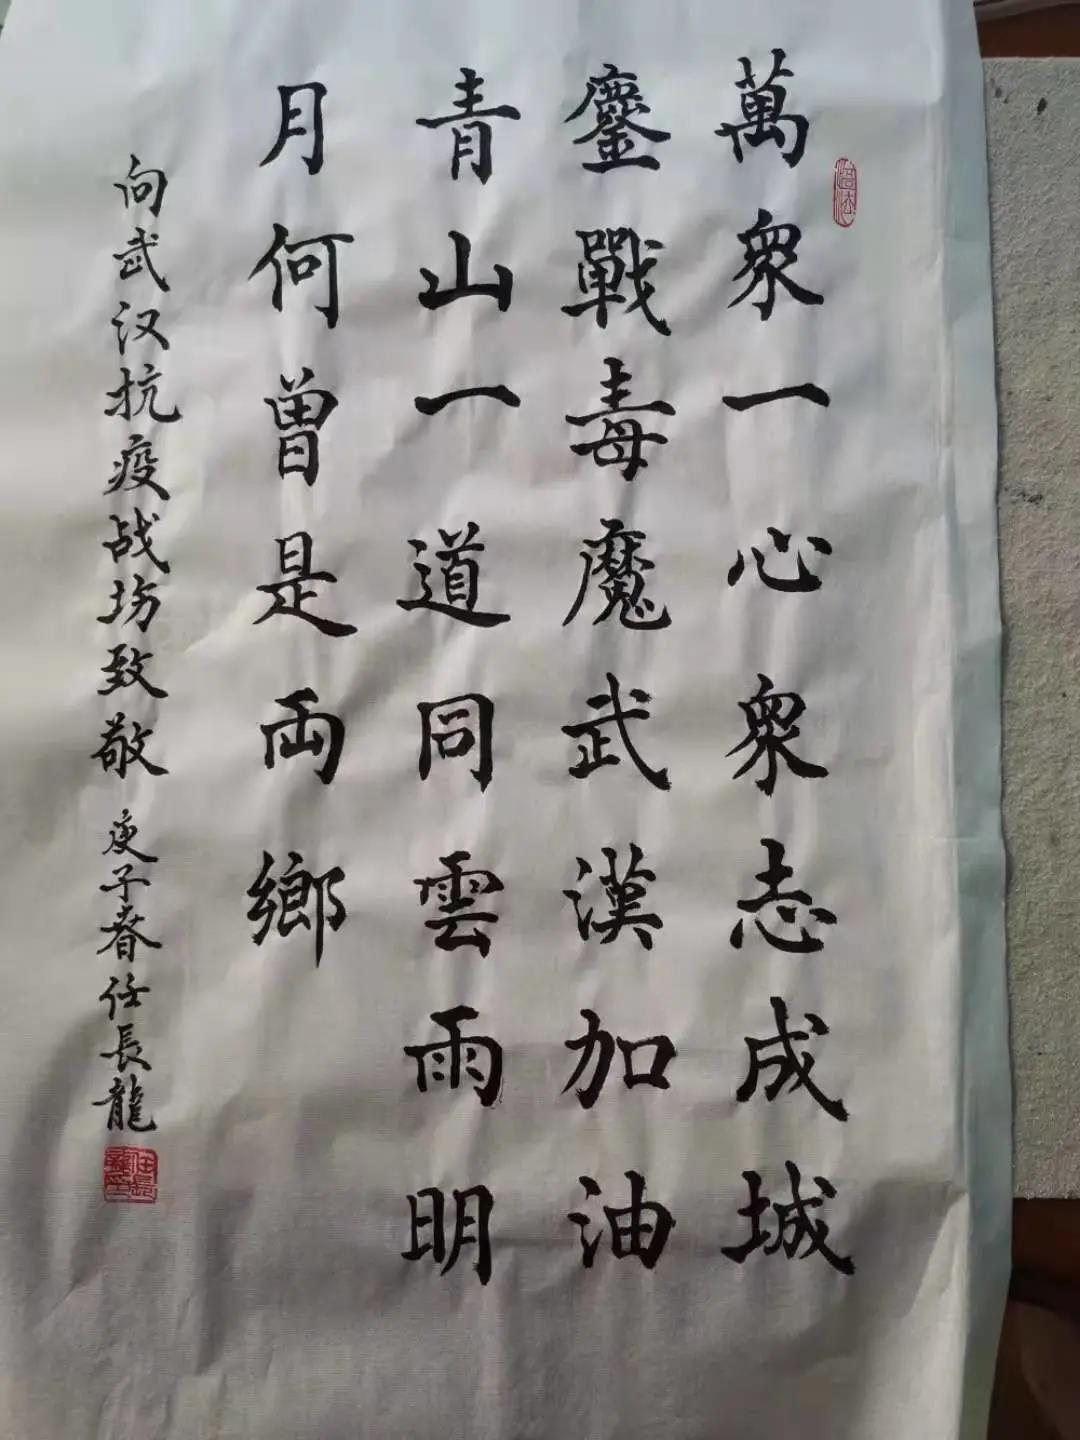 萬眾一心眾志成城
鏖戰毒魔武漢加油
青山一道同雲雨明
月何曾是兩鄉
向武汉抗疫战场致敬 庚子春任長龍